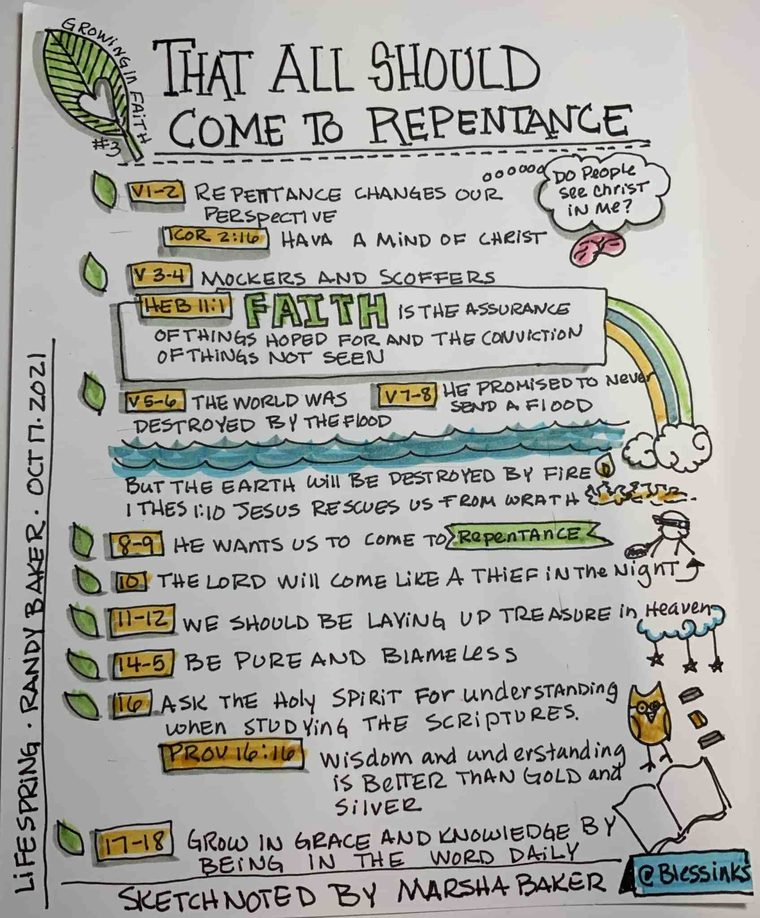 GROWING IN FAITH
#3
THAT ALL SHOULD
COME TO REPENTANCE
DO PEOPLE
SEE CHRIST
IN ME?
V1-2 REPENTANCE CHANGES OUR
PERSPECTIVE
1COR 2:16 HAVA A MIND OF CHRIST
V 3-4 MOCKERS AND SCOFFERS
HEB 11:1 FAITH IS THE ASSURANCE
OF THINGS HOPED FOR AND THE CONVICTION
OF THINGS NOT SEEN
V5-6 THE WORLD WAS
DESTROYED BY THE FLOOD
V7-8 HE PROMISED TO NEVER
SEND A FLOOD
BUT THE EARTH WILL BE DESTROYED BY FIRE
1 THES 1:10 JESUS RESCUES US FROM WRATH
8-9 HE WANTS US TO COME TO REPENTANCE
10 THE LORD WILL COME LIKE A THIEF IN THE NIGHT
11-12 WE SHOULD BE LAYING UP TREASURE in Heaven
14-5 BE PURE AND BLAMELESS
16 ASK THE HOLY SPIRIT FOR UNDERSTANDING
WHEN STUDYING THE SCRIPTURES.
PROV 16:16 WISDOM AND UNDERSTANDING
IS BETTER THAN GOLD AND
SILVER
17-18 GROW IN GRACE AND KNOWLEDGE BY
BEING IN THE WORD DAILY
SKETCHNOTED BY MARSHA BAKER
@Blessinks
LIFESPRING · RANDY BAKER · OCT 17. 2021